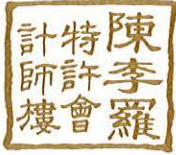 陳李羅
特許會
計師樓